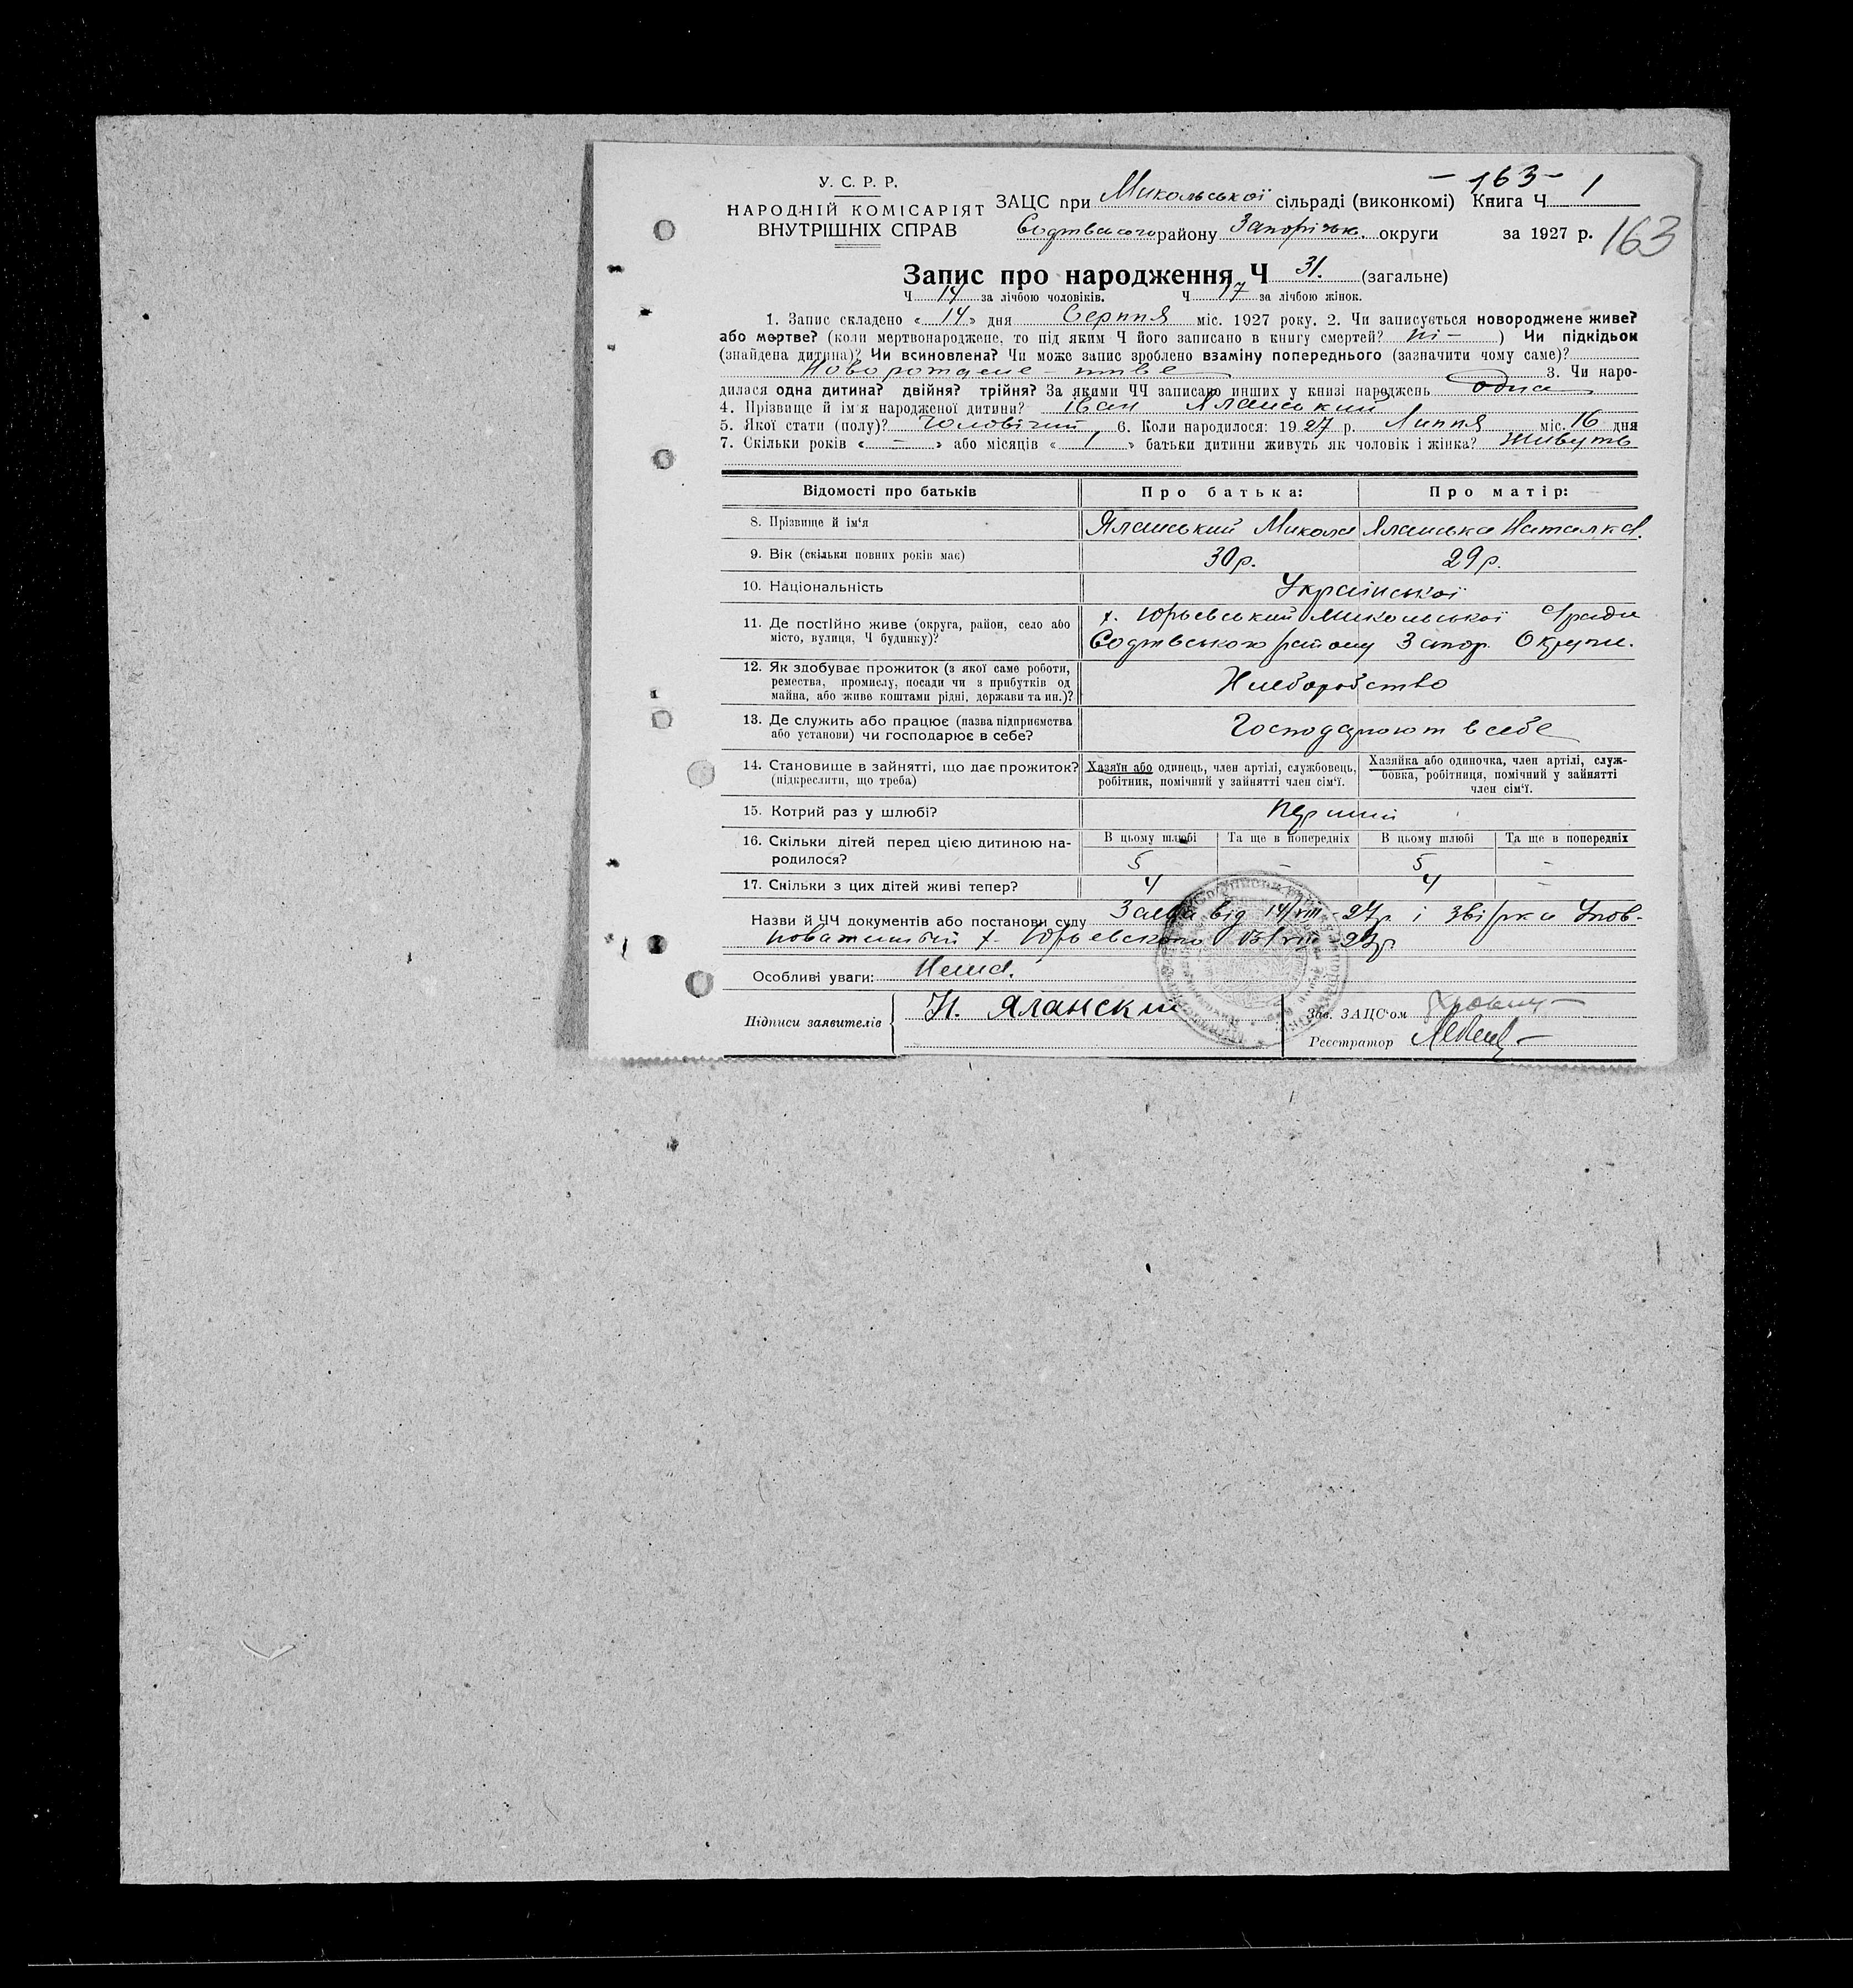 У. С. Р. Р.
НАРОДНІЙ КОМІСАРІЯТ
ВНУТРІШНІХ СПРАВ
- 163 -
ЗАЦС при Микольської сільраді (виконкомі) Книга Ч 1
району Запорізьк. округи за 1927 р. 163
Запис про народження Ч 31. (загальне)
Ч 14 за лічбою чоловіків. Ч 17 за лічбою жінок.
1. Запис складено « 14 » дня Серпня міс. 1927 року. 2. Чи записується новороджене живе?
або мертве? (коли мертвонароджене, то під яким Ч його записано в книгу смертей? ні - ) Чи підкідьок
(знайдена дитина)? Чи всиновлена? Чи може запис зроблено взаміну попереднього (зазначити чому саме)?
3. Чи наро-
дилася одна дитина? двійня? трійня? За якими ЧЧ записано инших у книзі народжень одна
4. Прізвище й ім'я народженої дитини? Іван Яланський
5. Якої стати (полу)? Чоловічий 6. Коли народилося: 1927 р. Липня міс. 16 дня
7. Скільки років « - » або місяців « 1 » батьки дитини живуть як чоловік і жінка? Живуть
Відомості про батьків
Про батька:
Про матір:
8. Прізвище й ім'я
Яланський Микола
Яланська Наталка
9. Вік (скільки повних років має)
30 р.
29 р.
10. Національність
Української
11. Де постійно живе (округа, район, село або
місто, вулиця, Ч будинку)?
х. Юрьевський Микольської с/ради
району Запор. Округи.
12. Як здобуває прожиток (з якої саме роботи,
ремества, промислу, посади чи з прибутків од
майна, або живе коштами рідні, держави та ин.)?
Хлеборобство
13. Де служить або працює (назва підприємства
або установи) чи господарює в себе?
Господарюют в себе
14. Становище в зайнятті, що дає прожиток?
(підкреслити, що треба)
Хазяїн або одинець, член артілі, службовець,
робітник, помічний у зайнятті член сім'ї.
Хазяйка або одиночка, член артілі, служ-
бовка, робітниця, помічний у зайнятті
член сім'ї.
15. Котрий раз у шлюбі?
Перший
16. Скільки дітей перед цією дитиною на-
родилося?
В цьому шлюбі
Та ще в попередніх
В цьому шлюбі
Та ще в попередніх
5 - 5 -
17. Скільки з цих дітей живі тепер?
4 4 -
Назви й ЧЧ документів або постанови суду Заява від 14/VIII-27р. і Упов-
х. Юрьевского
Особливі уваги: Нема.
Підписи заявителів
Н. Яланский
Зав. ЗАЦС'ом
Реєстратор